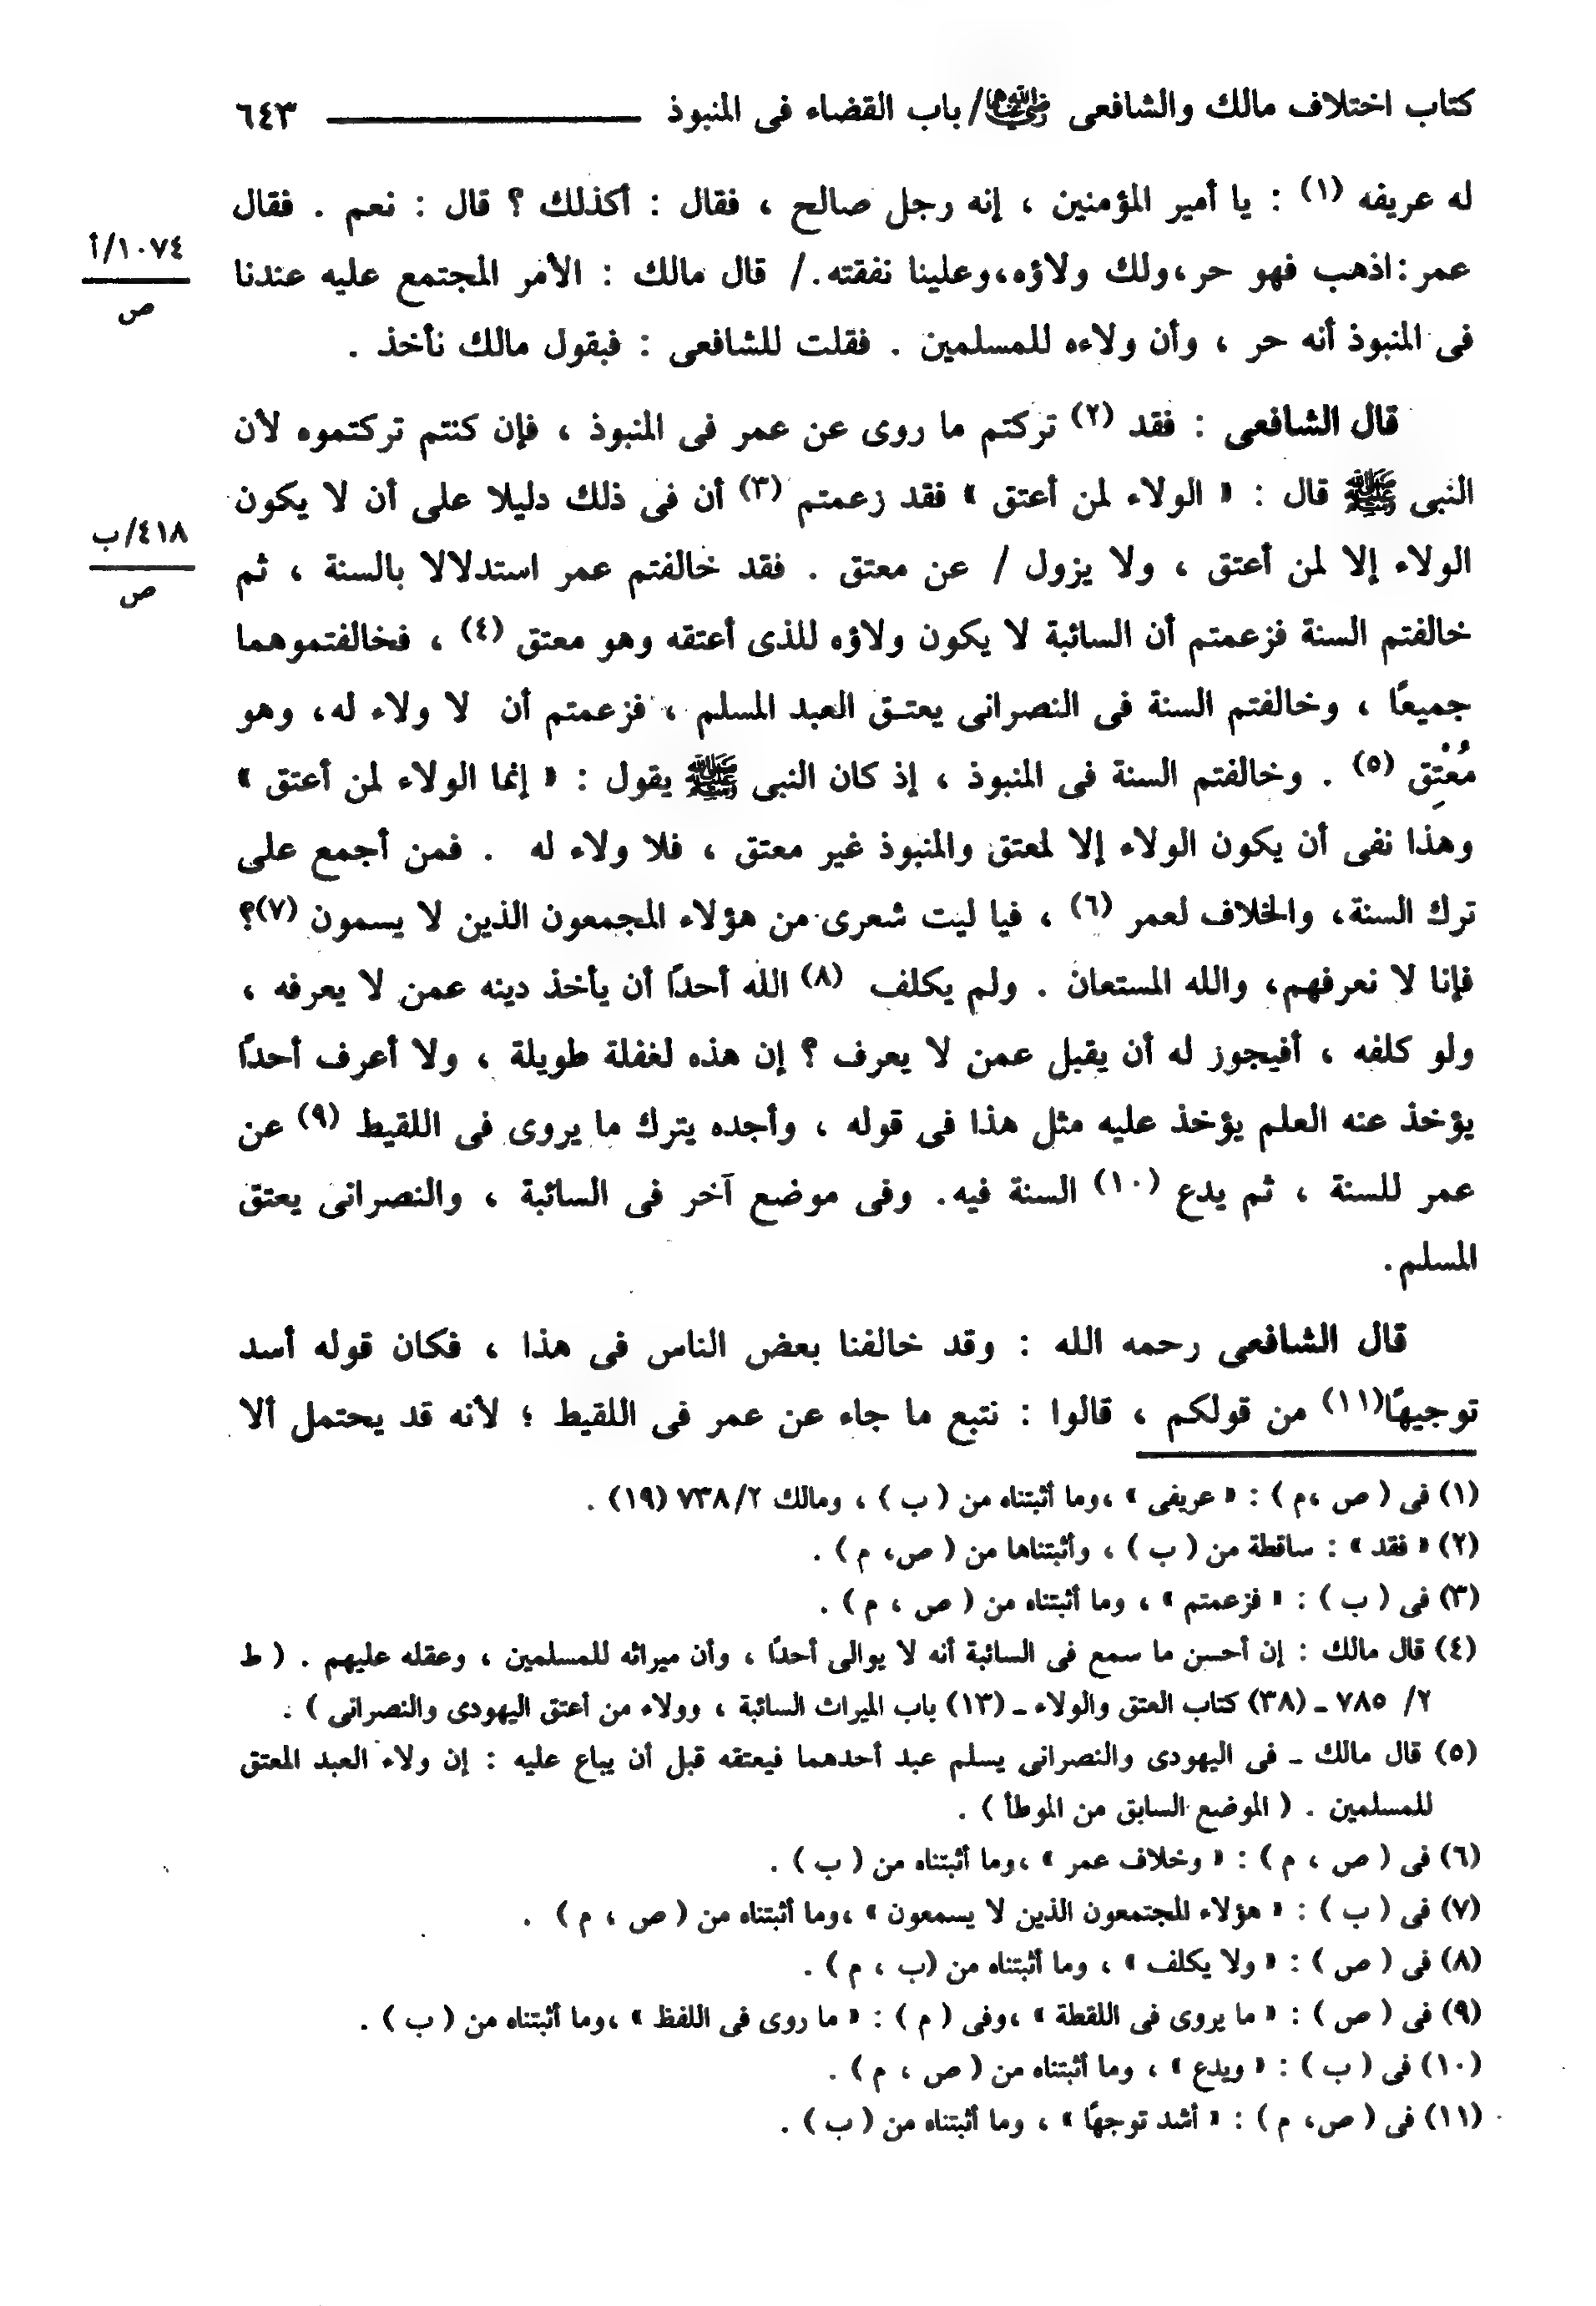 كتاب اختلاف مالك والشافعى رضي الله عنهما / باب القضاء فى المنبوذ ــــــــــــــــ ٦٤٣
له عريفه (١) : يا أمير المؤمنين ، إنه رجل صالح ، فقال : أكذلك ؟ قال : نعم . فقال
١٠٧٤/أ
ص
عمر:اذهب فهو حر،ولك ولاؤه،وعلينا نفقته./ قال مالك : الأمر المجتمع عليه عندنا
فى المنبوذ أنه حر ، وأن ولاءه للمسلمين . فقلت للشافعى : فبقول مالك نأخذ .
قال الشافعى : فقد (٢) تركتم ما روى عن عمر فى المنبوذ ، فإن كنتم تركتموه لأن
النبى ﷺ قال : « الولاء لمن أعتق » فقد زعمتم (٣) أن فى ذلك دليلا على أن لا يكون
٤١٨/ب
ص
الولاء إلا لمن أعتق ، ولا يزول / عن معتق . فقد خالفتم عمر استدلالا بالسنة ، ثم
خالفتم السنة فزعمتم أن السائبة لا يكون ولاؤه للذى أعتقه وهو معتق (٤) ، فخالفتموهما
جميعًا ، وخالفتم السنة فى النصرانى يعتـق العبد المسلم ، فزعمتم أن لا ولاء له، وهو
مُعْتِق (٥) . وخالفتم السنة فى المنبوذ ، إذ كان النبى ﷺ يقول : « إنما الولاء لمن أعتق »
وهذا نفى أن يكون الولاء إلا لمعتق والمنبوذ غير معتق ، فلا ولاء له . فمن أجمع على
ترك السنة، والخلاف لعمر (٦) ، فيا ليت شعرى من هؤلاء المجمعون الذين لا يسمون (٧)؟
فإنا لا نعرفهم، والله المستعان . ولم يكلف (٨) الله أحدًا أن يأخذ دينه عمن لا يعرفه ،
ولو كلفه ، أفيجوز له أن يقبل عمن لا يعرف ؟ إن هذه لغفلة طويلة ، ولا أعرف أحدًا
يؤخذ عنه العلم يؤخذ عليه مثل هذا فى قوله ، وأجده يترك ما يروى فى اللقيط (٩) عن
عمر للسنة ، ثم يدع (١٠) السنة فيه. وفى موضع آخر فى السائبة ، والنصرانى يعتق
المسلم.
قال الشافعى رحمه الله : وقد خالفنا بعض الناس فى هذا ، فكان قوله أسد
توجيهًا(١١) من قولكم ، قالوا : نتبع ما جاء عن عمر فى اللقيط ؛ لأنه قد يحتمل ألا
(١) فى ( ص ،م ) : « عريفى » ،وما أثبتناه من ( ب ) ، ومالك ٢/ ٧٣٨ (١٩) .
(٢) « فقد » : ساقطة من ( ب ) ، وأثبتناها من ( ص، م ) .
(٣) فى ( ب ) : « فزعمتم » ، وما أثبتناه من ( ص ، م ) .
(٤) قال مالك : إن أحسن ما سمع فى السائبة أنه لا يوالى أحدًا ، وأن ميراثه للمسلمين ، وعقله عليهم . ( ط
٢/ ٧٨٥ ـ (٣٨) كتاب العتق والولاء ـ (١٣) باب الميراث السائبة ، وولاء من أعتق اليهودى والنصرانى ) .
(٥) قال مالك ـ فى اليهودى والنصرانى يسلم عبد أحدهما فيعتقه قبل أن يباع عليه : إن ولاء العبد المعتق
للمسلمين . ( الموضع السابق من الموطأ ) .
(٦) فى ( ص ، م ) : « وخلاف عمر » ،وما أثبتناه من ( ب ) .
(٧) فى ( ب ) : « هؤلاء المجتمعون الذين لا يسمعون » ،وما أثبتناه من ( ص ، م ) .
(٨) فى ( ص ) : « ولا يكلف » ، وما أثبتناه من (ب ، م ) .
(٩) فى ( ص ) : « ما يروى فى اللقطة » ،وفى ( م ) : « ما روى فى اللفظ » ،وما أثبتناه من ( ب ) .
(١٠) فى ( ب ) : « ويدع » ، وما أثبتناه من ( ص ، م ) .
(١١) فى ( ص، م ) : « أشد توجهًا » ، وما أثبتناه من ( ب ) .